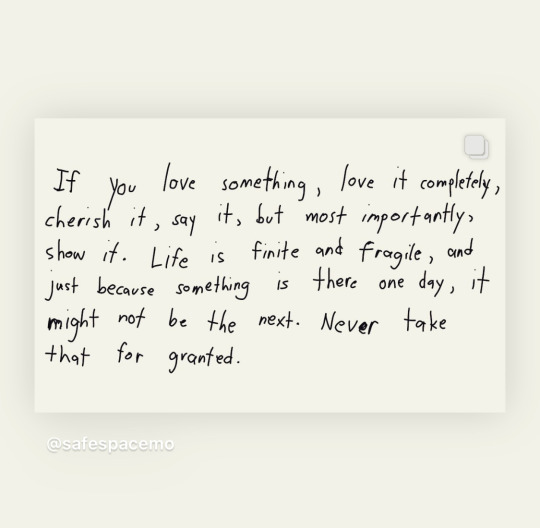 If you love something, love it completely,
cherish it, say it, but most importantly,
show it. Life is finite and fragile, and
just because something is there one day, it
might not be the next. Never take
that for granted.
@safespacemo